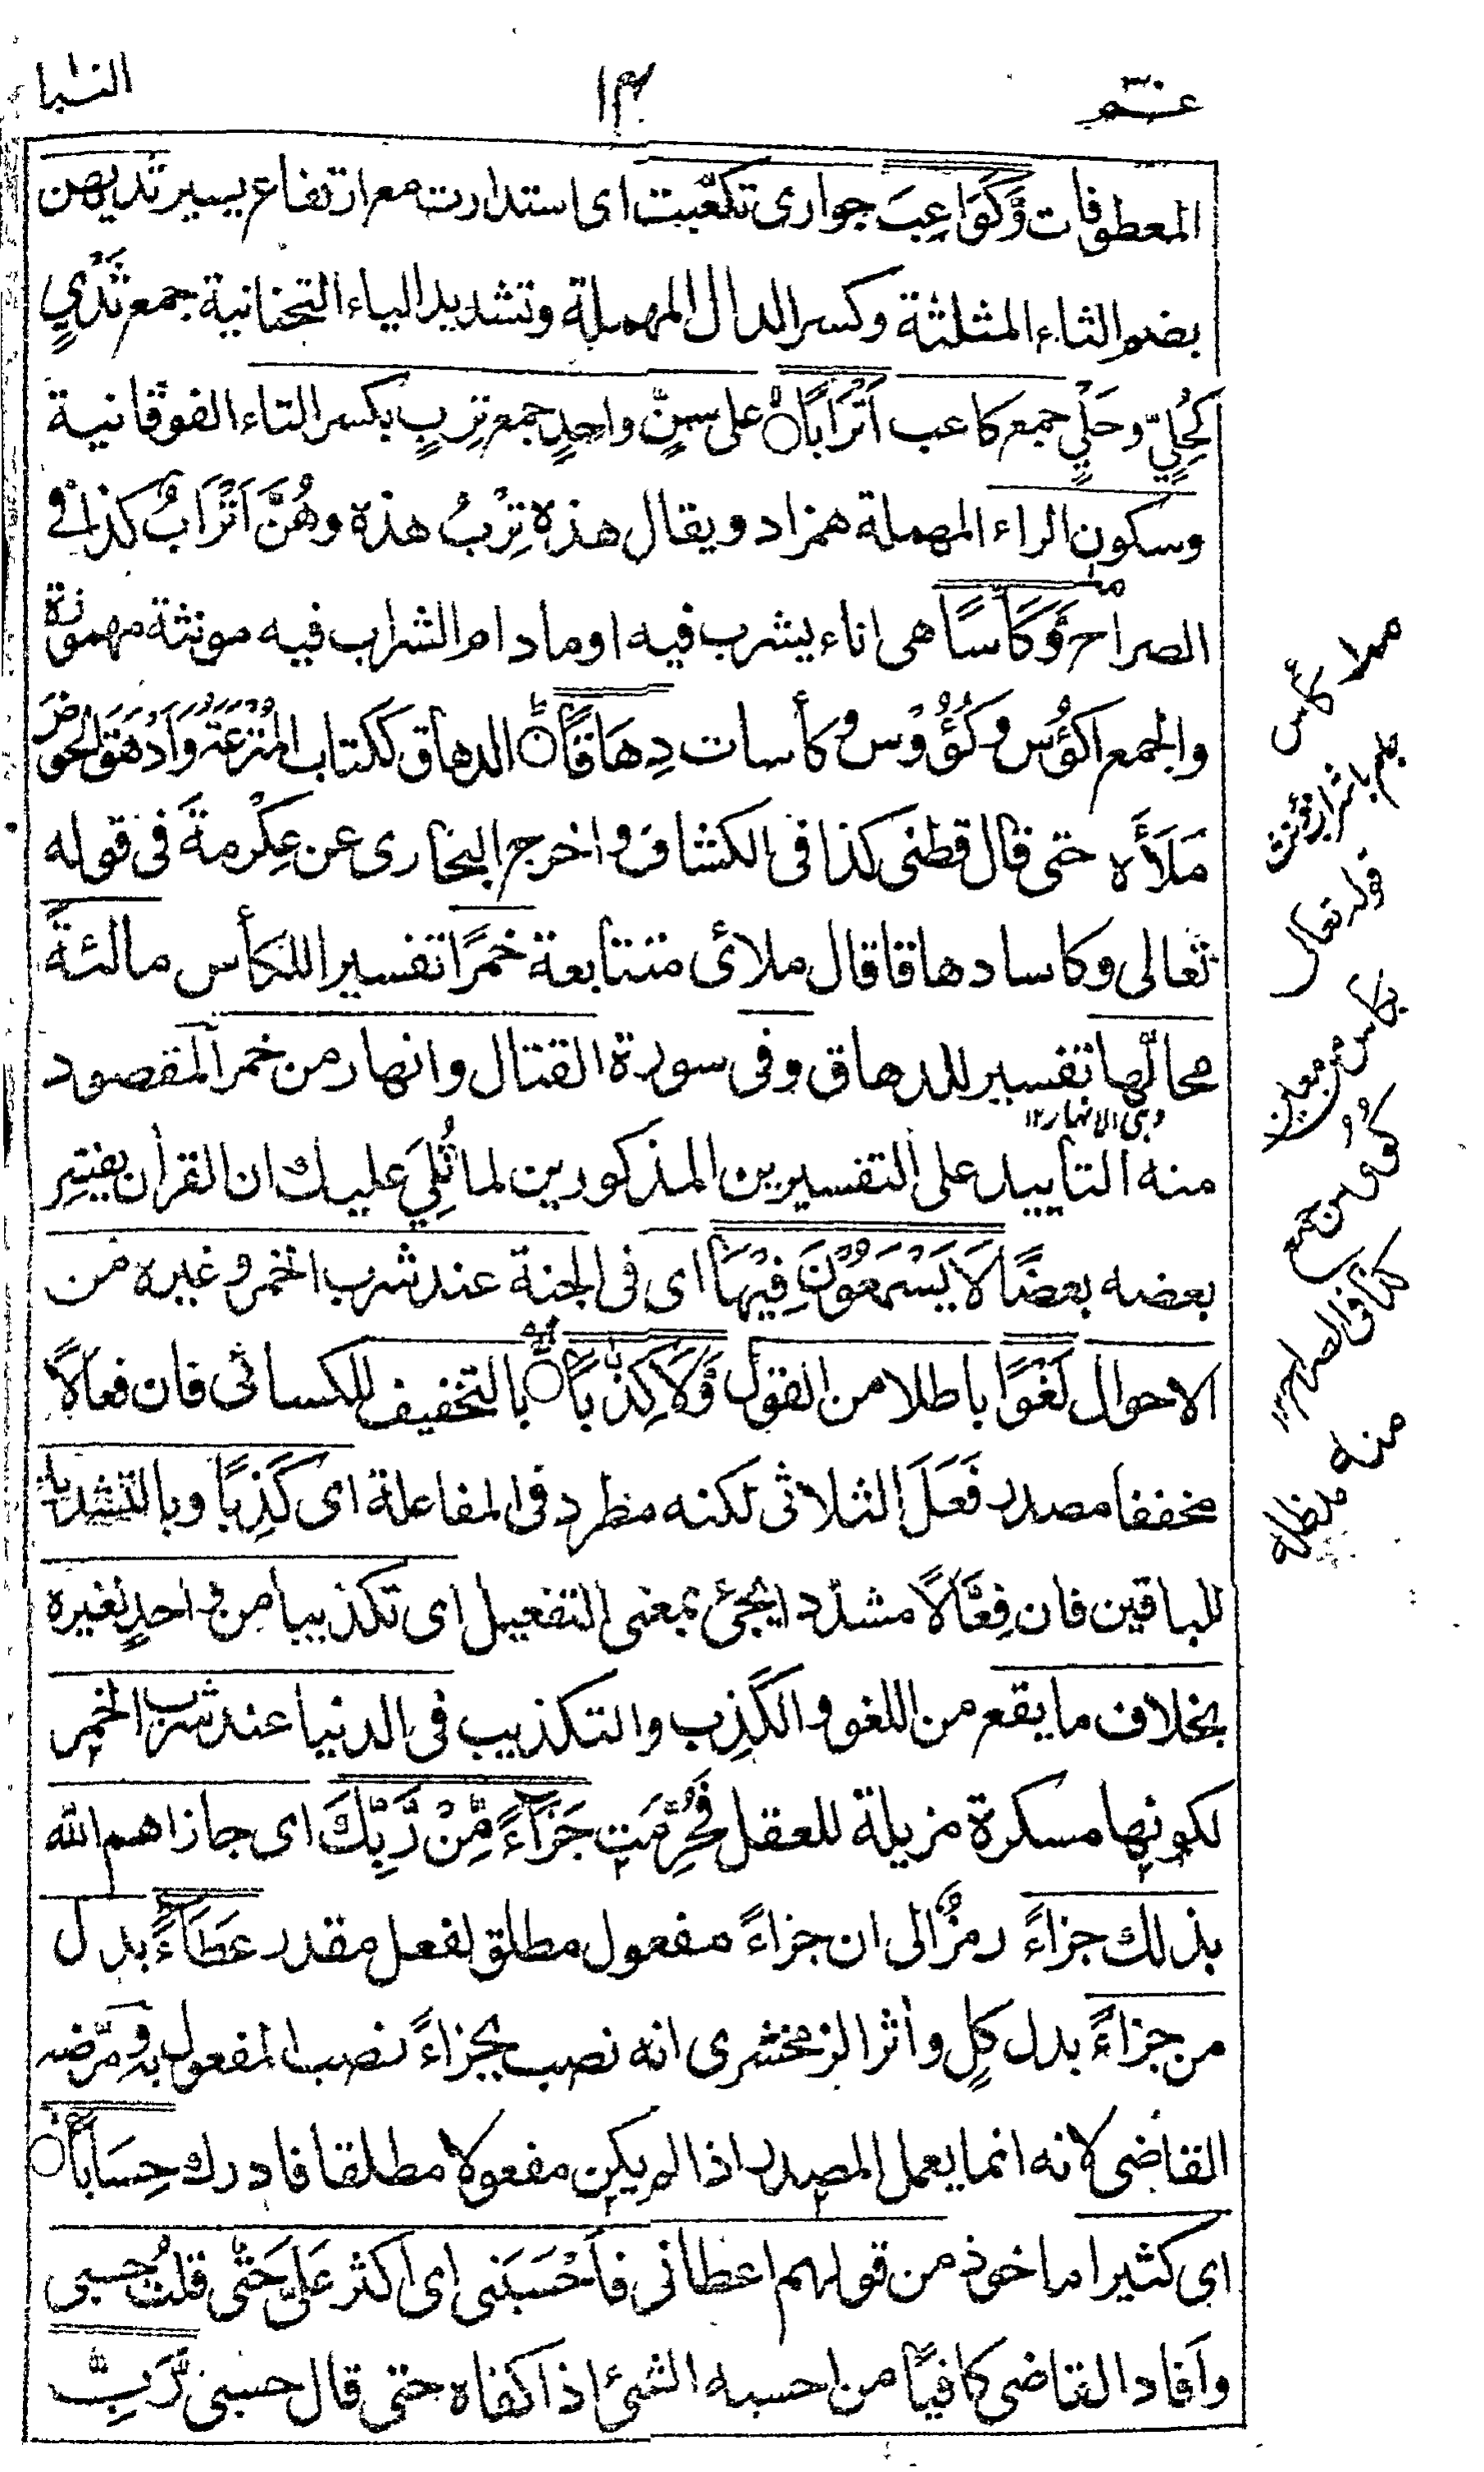 عم ٣٠
١٤
النبا
المعطوفات وَّكَوَاعِبَ جوارى تكعّبت اى استدارت مع ارتفاع يسير ثديهن
بضم الثاء المثلثة وكسر الدال المهملة وتشديد الياء التحتانية جمع ثَدْيٍ
كحُلِيّ وحَلْيٍ جمع كاعب اَتْرَابًا ۙ على سِنٍّ واحدٍ جمع تِرْبٍ بكسر التاء الفوقانية
وسكون الراء المهملة همزاد ويقال هذه تِرْبُ هذه وهُنَّ اَتْرَابٌ كذا فى
الصراح وَّكَاْسًا هى اناء يشرب فيه او ما دام الشراب فيه مونثة مهموزة
والجمع اكؤُس وكُؤُوْس وكأسات دِهَاقًا ۭ الدهاق ككتاب المُتْرَعَةُ وَاَدْهَقَ الحوضَ
مَلَأَه حتى قال قطنى كذا فى الكشاف واخرج البخارى عن عِكْرِمةَ فى قوله
تعالى وكاسا دهاقا قال ملائى متتابعة خَمرًا تفسير اللكأس مالئةً
محالّها تفسير للدهاق وفى سورة القتال وانهار من خمر المقصود
وهى الانهار ١٢
منه التاييد على التفسيرين المذكورين لما تُلِيَ عليك ان القران يفسّر
بعضه بعضًا لَا يَسْمَعُوْنَ فِيْهَا اى فى الجنة عند شرب الخمر وغيره من
الاحوال لَغْوًا باطلا من القول وَّلَا كِذّٰبًا ۚ بالتخفيف للكسائى فان فعالًا
مخففا مصدر فَعَلَ الثلاثى لكنه مطرد فى المفاعلة اى كَذِبًا وبالتشديد
للباقين فان فِعَّالًا مشدّدا يجئ بمعنى التفعيل اى تكذيبا من واحدٍ لغيره
بخلاف ما يقع من اللغو والكَذِب والتكذيب فى الدنيا عند شرب الخمر
لكونها مسكرة مزيلة للعقل فحُرِّمَت جَزَآءً مِّنْ رَّبِّكَ اى جازاهم الله
بذلك جزاءً رمزٌ الى ان جزاءً مفعول مطلق لفعل مقدر عَطَآءً بدل
من جزاءً بدل كلٍ واثر الزمخشرى انه نصب بجزاءً نصب المفعول به ومرّضه
القاضى لانه انما يعمل المصدر اذا لم يكن مفعولا مطلقا فادرك حِسَابًا ۙ
اى كثيرا ماخوذ من قولهم اعطانى فأَحْسَبَنى اى اكثر عَلَيَّ حَتّى قلتُ حسبى
وافاد القاضى كافيًا من احسبه الشئ اذا كفاه حتى قال حسبى رَّبِّ
كأس
جام باشراب مونث
قوله تعالى
بكأس من معين
كؤوس جمع
كذا فى الصراح ١٢
منه مدظله